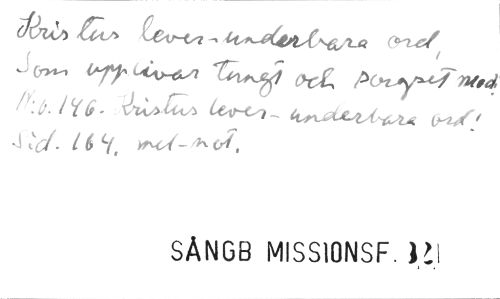 Kristus lever - underbara ord,
Som upplivar tungt och sorgset mod.
N:o. 146. Kristus lever - underbara ord!
Sid. 164. mel-not.
SÅNGB MISSIONSF.